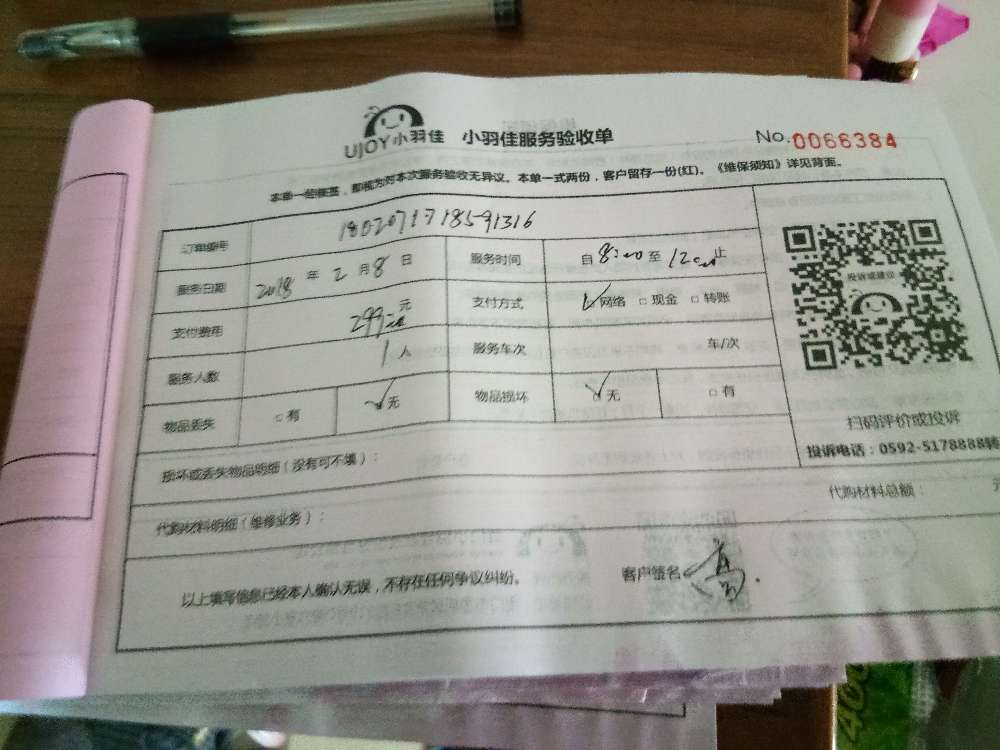 UJOY小羽佳 小羽佳服务验收单 No.0066384
本单一经签署，即视为对本次服务验收无异议。本单一式两份，客户留存一份(红)。《维保须知》详见背面。
订单编号 1802071718591316
服务日期 2018 年 2 月 8 日 服务时间 自 8:00 至 12:00 止
支付费用 299元 支付方式 ☑网络 □现金 □转账
服务人数 1人 服务车次 车/次
物品丢失 □有 ☑无 物品损坏 ☑无 □有
投诉或建议
扫码评价或投诉
投诉电话：0592-5178888转
损坏或丢失物品明细（没有可不填）：
代购材料明细（维修业务）： 代购材料总额： 元
以上填写信息已经本人确认无误，不存在任何争议纠纷。 客户签名